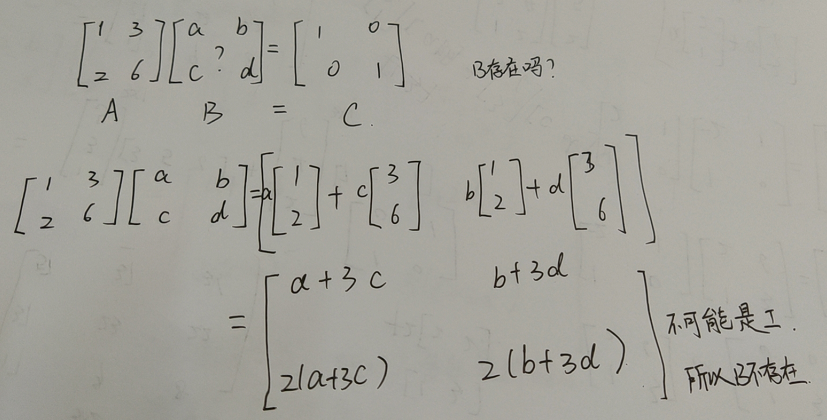 [1 3; 2 6] [a b; c ? d] = [1 0; 0 1] B存在吗?
A B = C.
[1 3; 2 6] [a b; c d] = [a[1; 2] + c[3; 6] b[1; 2] + d[3; 6]]
= [a+3c b+3d; 2(a+3c) 2(b+3d)] 不可能是I.
所以B不存在